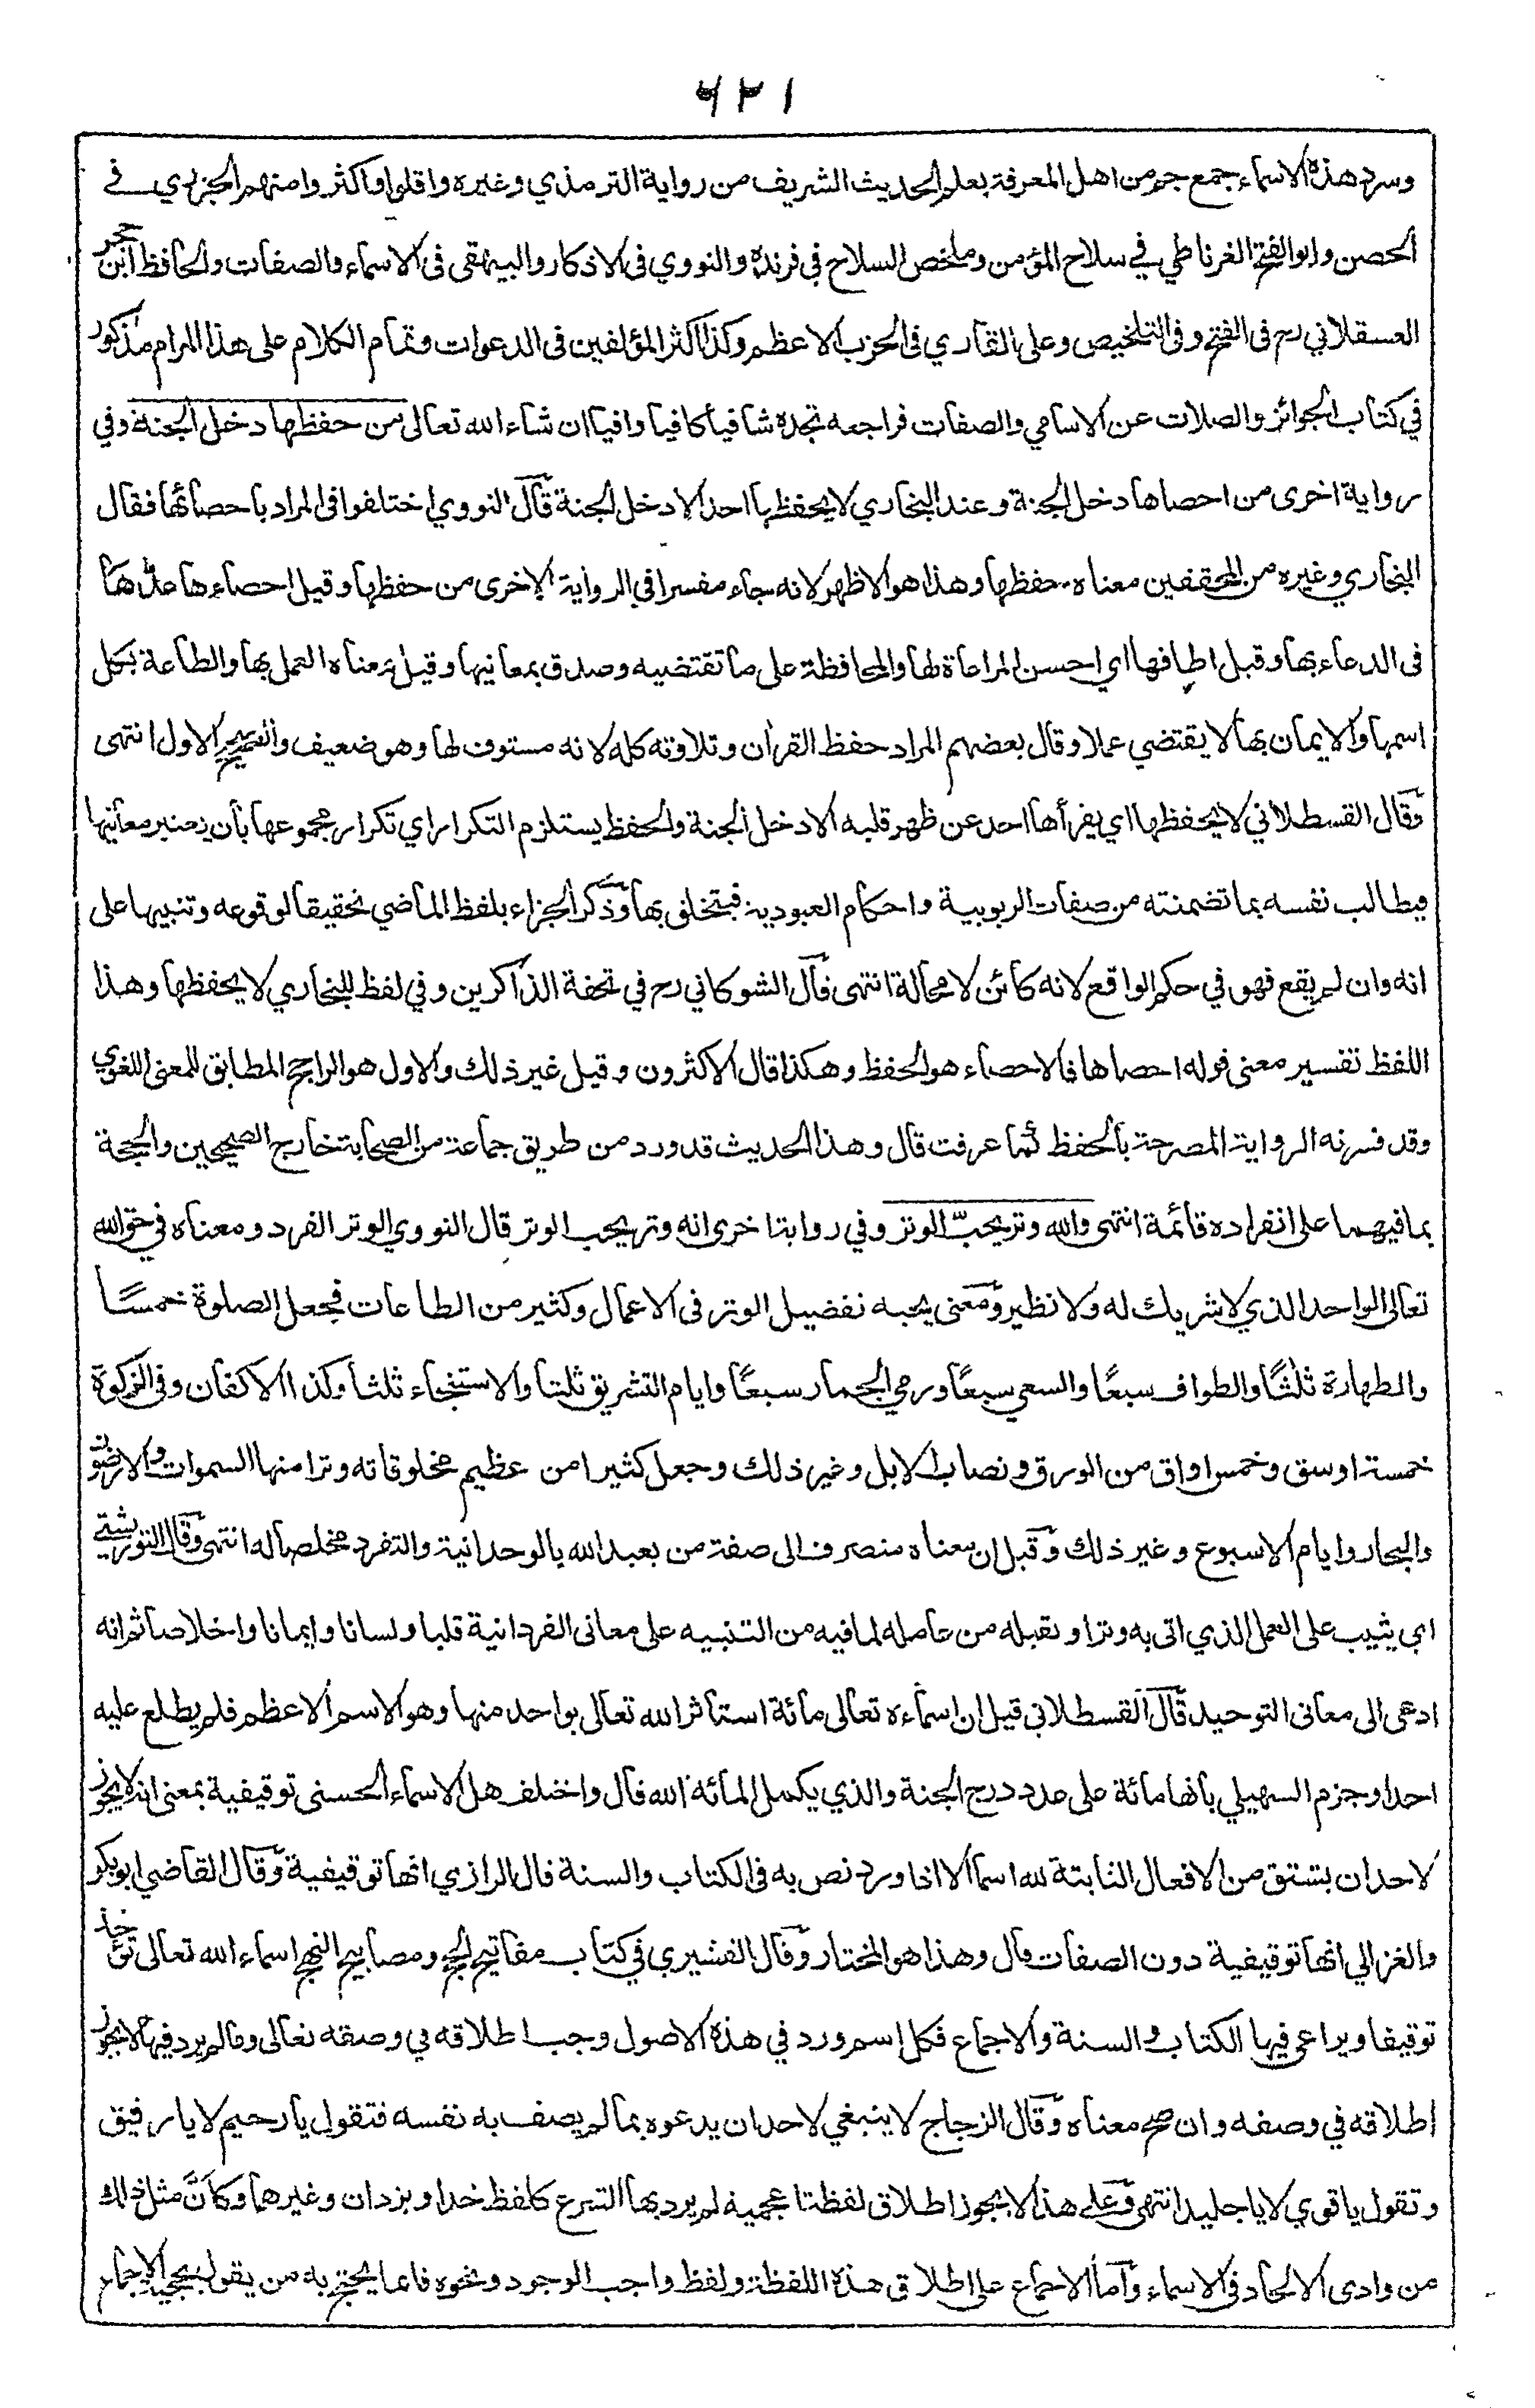 ٦٢١
وسرد هذه الاسماء جمع جم من اهل المعرفة بعلم الحديث الشريف من رواية الترمذي وغيره واقلوا واكثروا منهم الجزري في
الحصن وابو الفتح الغرناطي في سلاح المؤمن وملخص السلاح في فرنده والنووي في الاذكار والبيهقي في الاسماء والصفات والحافظ ابن حجر
العسقلاني رح في الفتح وفي التلخيص وعلي القاري في الحزب الاعظم وكذا اكثر المؤلفين في الدعوات وتمام الكلام على هذا المرام مذكور
في كتاب الجوائز والصلات عن الاسامي والصفات فراجعه تجده شافيا كافيا وافيا ان شاء الله تعالى من حفظها دخل الجنة وفي
رواية اخرى من احصاها دخل الجنة وعند البخاري لا يحفظها احد الا دخل الجنة قال النووي اختلفوا في المراد باحصائها فقال
البخاري وغيره من المحققين معناه حفظها وهذا هو الاظهر لانه جاء مفسرا في الرواية الاخرى من حفظها وقيل احصاءها عدّها
في الدعاء بها وقيل اطاقها اي احسن المراعاة لها والمحافظة على ما تقتضيه وصدق بمعانيها وقيل معناه العمل بها والطاعة بكل
اسمها والايمان بها لا يقتضي عملا وقال بعضهم المراد حفظ القرآن وتلاوته كله لانه مستوف لها وهو ضعيف والصحيح الاول انتهى
وقال القسطلاني لا يحفظها اي يقرأها احد عن ظهر قلبه الا دخل الجنة والحفظ يستلزم التكرار اي تكرار مجموعها بأن معانيها
فيطالب نفسه بما تضمنته من صفات الربوبية واحكام العبودية فيتخلق بها وذكر الجزاء بلفظ الماضي تحقيقا لوقوعه وتنبيها على
انه وان لم يقع فهو في حكم الواقع لانه كائن لا محالة انتهى قال الشوكاني رح في تحفة الذاكرين وفي لفظ للبخاري لا يحفظها وهذا
اللفظ تفسير معنى قوله احصاها فالاحصاء هو الحفظ وهكذا قال الاكثرون وقيل غير ذلك والاول هو الراجح المطابق للمعنى اللغوي
وقد فسرته الرواية المصرحة بالحفظ كما عرفت قال وهذا الحديث قد ورد من طريق جماعة من الصحابة خارج الصحيحين والحجة
بما فيهما على انفراده قائمة انتهى والله وتر يحبّ الوتر وفي رواية اخرى انه وتر يحب الوتر قال النووي الوتر الفرد ومعناه في حق الله
تعالى الواحد الذي لا شريك له ولا نظير ومعنى يحبه تفضيل الوتر في الاعمال وكثير من الطاعات فجعل الصلوة خمسًا
والطهارة ثلثًا والطواف سبعًا والسعي سبعًا ورمي الجمار سبعًا وايام التشريق ثلثا والاستنجاء ثلثا وكذا الاكفان وفي الزكوة
خمسة اوسق وخمس اواق من الورق ونصاب الابل وغير ذلك وجعل كثيرا من عظيم مخلوقاته وترا منها السموات والارضون
والبحار وايام الاسبوع وغير ذلك وقيل ان معناه منصرف الى صفة من يعبد الله بالوحدانية والتفرد مخلصا له انتهى وقال التوربشتي
اي يثيب على العمل الذي اتى به وترا ويقبله من عامله لما فيه من التنبيه على معاني الفردانية قلبا ولسانا وايمانا واخلاصا ثم انه
ادعى الى معاني التوحيد قال القسطلاني قيل ان اسماءه تعالى مائة استأثر الله تعالى بواحد منها وهو الاسم الاعظم فلم يطلع عليه
احدا وجزم السهيلي بانها مائة على عدد درج الجنة والذي يكمل المائة الله قال واختلف هل الاسماء الحسنى توقيفية بمعنى انه لا يجوز
لاحد ان يشتق من الافعال الثابتة لله اسما الا اذا ورد نص به في الكتاب والسنة قال الرازي انها توقيفية وقال القاضي ابو بكر
والغزالي انها توقيفية دون الصفات قال وهذا هو المختار وقال القشيري في كتاب مفاتيح الحجج ومصابيح النهج اسماء الله تعالى تؤخذ
توقيفا ويراعى فيها الكتاب والسنة والاجماع فكل اسم ورد في هذه الاصول وجب اطلاقه في وصفه تعالى وما لم يرد فيها لا يجوز
اطلاقه في وصفه وان صح معناه وقال الزجاج لا ينبغي لاحد ان يدعوه بما لم يصف به نفسه فتقول يا رحيم لا يا رفيق
وتقول يا قوي لا يا جليد انتهى وعلى هذا لا يجوز اطلاق لفظة اعجمية لم يرد بها الشرع كلفظ خدا ويزدان وغيرهما وكان مثل ذلك
من وادى الالحاد في الاسماء واما الاجماع على اطلاق هذه اللفظة ولفظ واجب الوجود ونحوه فانما يحتج به من يقول بحجية الاجماع